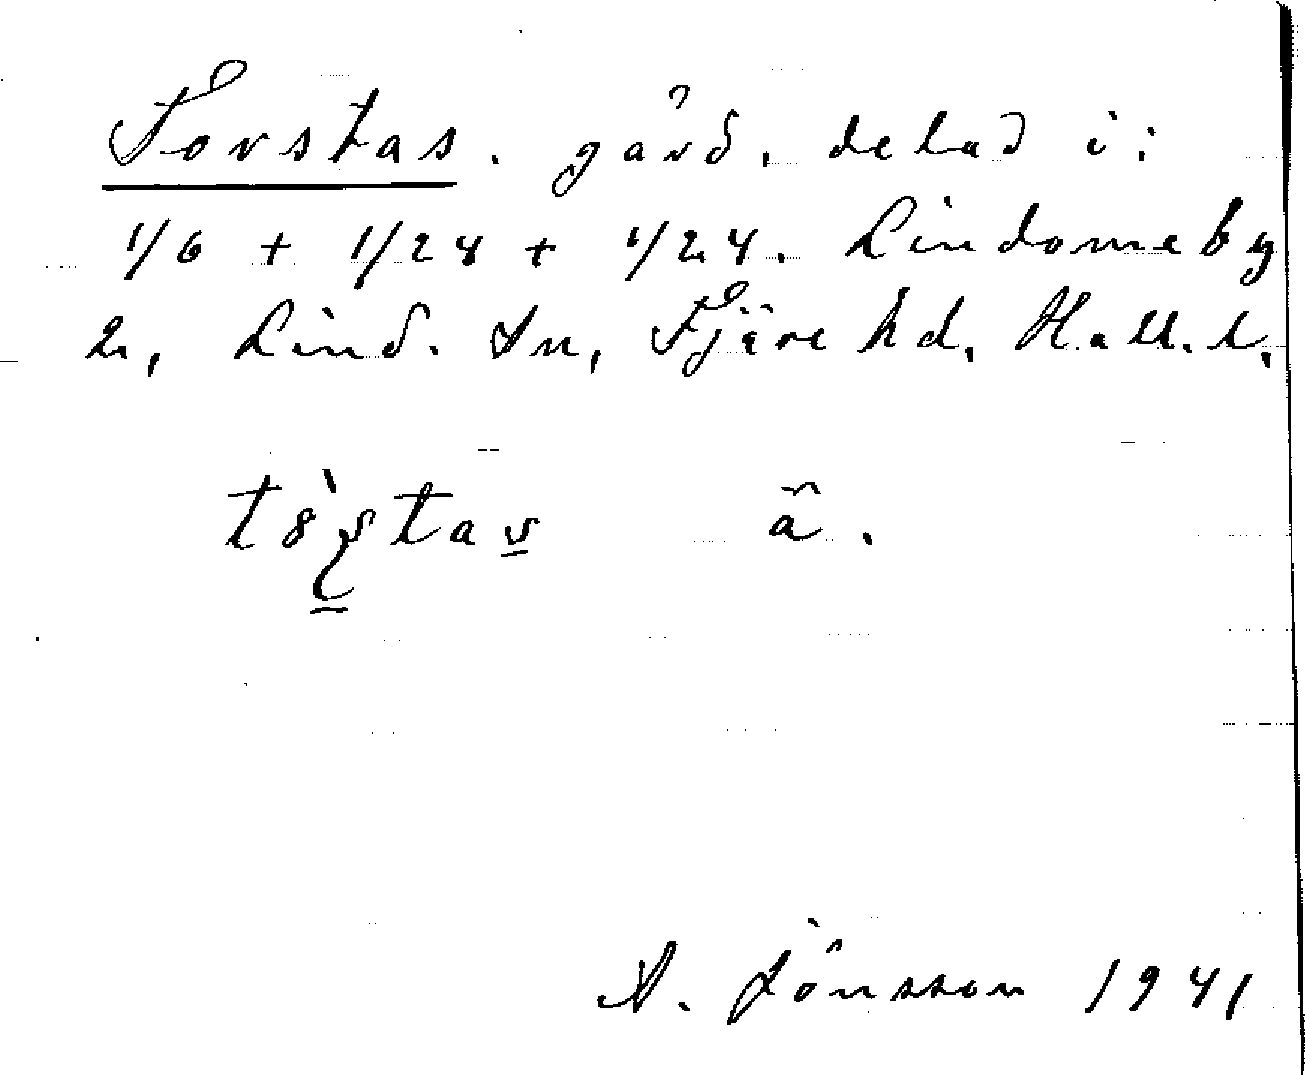 Torstas. gård, delad i:
1/6 + 1/24 + 1/24. Lindome by
2, Lind. sn, Fjäre hd, Hall. l.
â.
A. Jönsson 1941